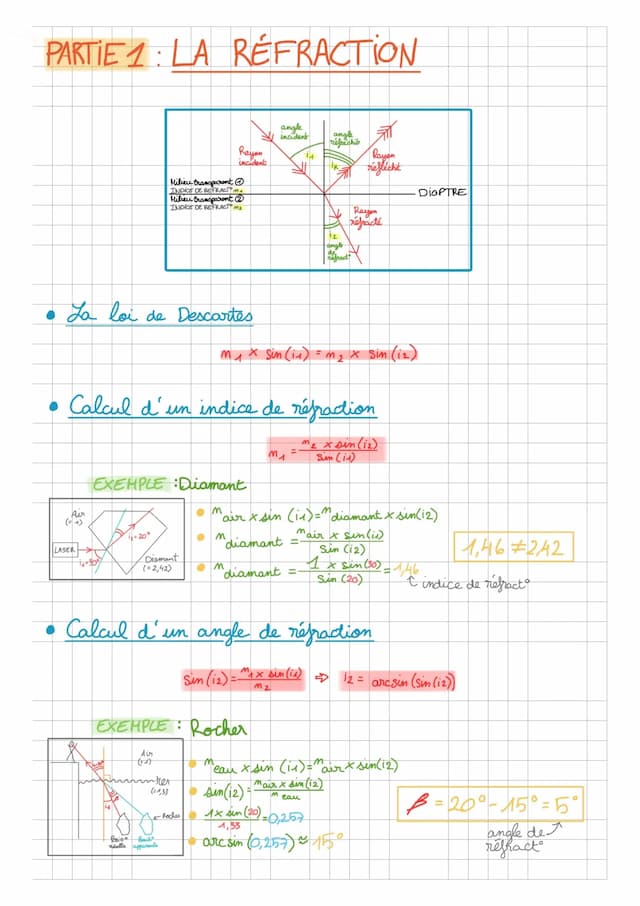 PARTIE 1 : LA RÉFRACTION
angle incident
angle réfléchi
i1
iR
Rayon incident
Rayon réfléchi
Milieu transparent ①
INDICE DE REFRACT° n1
Milieu transparent ②
INDICE DE REFRACT° n2
DIOPTRE
Rayon réfracté
i2
angle de réfract°
• La loi de Descartes
n1 x sin(i1) = n2 x sin(i2)
• Calcul d'un indice de réfraction
n1 = n2 x sin(i2) / sin(i1)
EXEMPLE : Diamant
Air
LASER
i1=30°
i2=20°
Diamant
(=2,42)
• n air x sin (i1) = n diamant x sin(i2)
• n diamant = n air x sin(i1) / sin(i2)
• n diamant = 1 x sin(30) / sin(20) = 1,46
1,46 ≠ 2,42
indice de réfract°
• Calcul d'un angle de réfraction
sin(i2) = n1 x sin(i1) / n2 ⇨ i2 = arcsin(sin(i2))
EXEMPLE : Rocher
Air
Mer
(=1,33)
Rocher
• n eau x sin (i1) = n air x sin(i2)
• sin(i2) = n air x sin(i2) / n eau
• 1 x sin(20) / 1,33 = 0,257
• arcsin(0,257) ≈ 15°
β = 20° - 15° = 5°
angle de réfract°